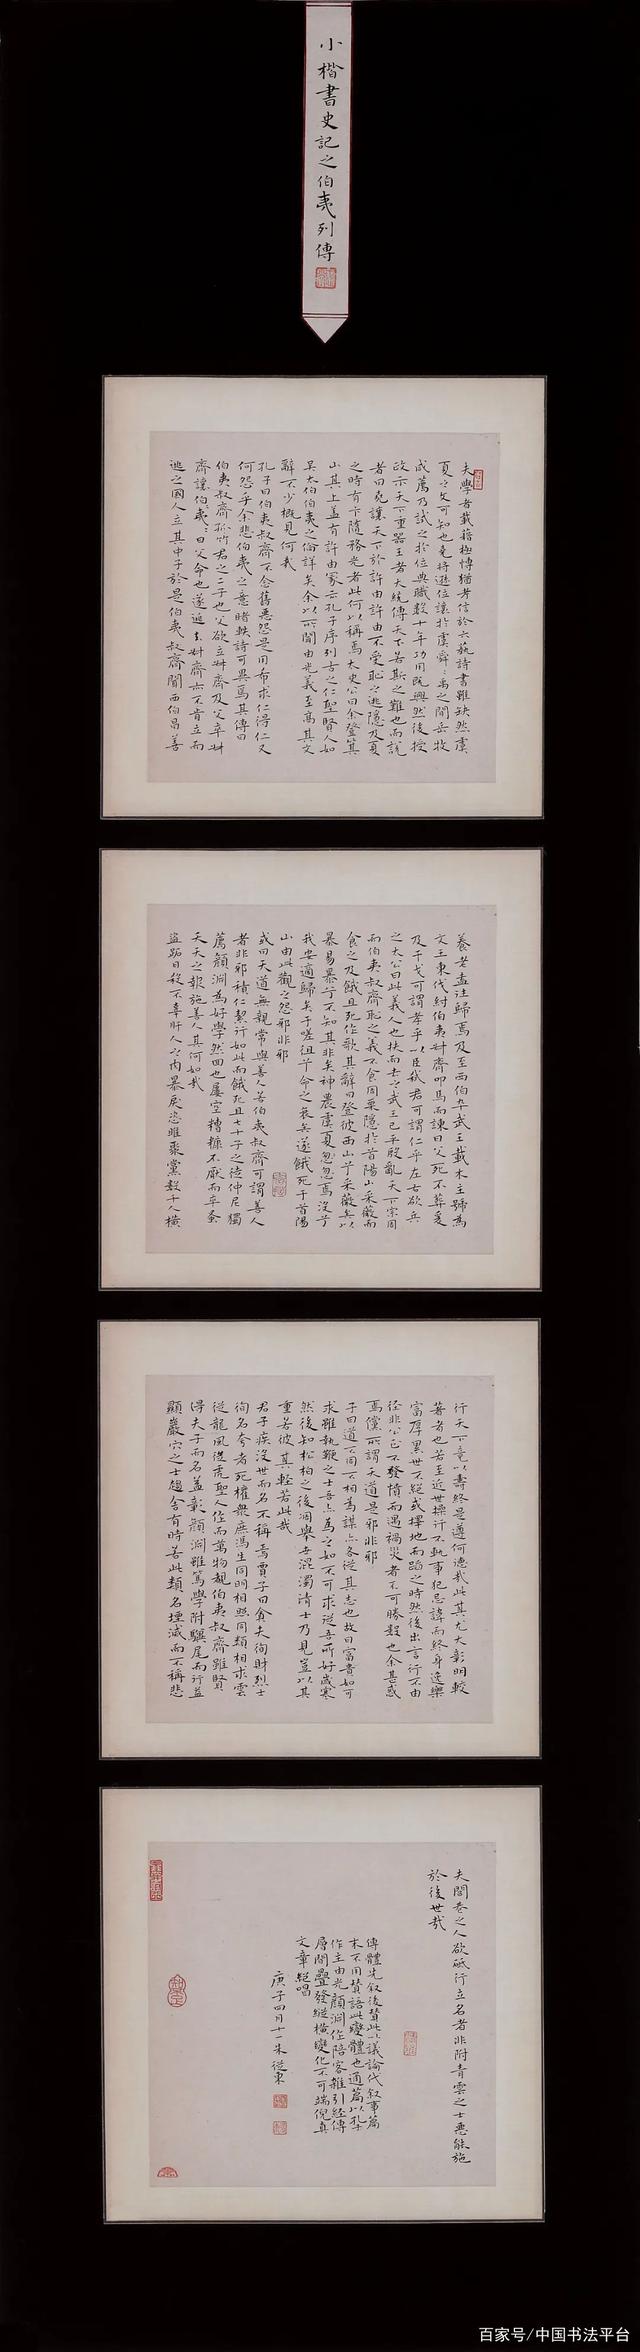 小楷書史記之伯夷列傳
夫學者載籍極博猶考信於六藝詩書雖缺然虞
夏之文可知也堯將遜位讓於虞舜:禹之間岳牧
咸薦乃試之於位典職數十年功用既興然後授
政示天下重器王者大統傳天下若斯之難也而說
者曰堯讓天下於許由許由不受恥之逃隱及夏
之時有卞隨務光者此何以稱焉太史公曰余登箕
山其上蓋有許由冢云孔子序列古之仁聖賢人如
吳太伯伯夷之倫詳矣余以所聞由光義至高其文
辭不少概見何哉
孔子曰伯夷叔齊不念舊惡怨是用希求仁得仁又
何怨乎余悲伯夷之意睹軼詩可異焉其傳曰
伯夷叔齊孤竹君之二子也父欲立叔齊及父卒叔
齊讓伯:夷:曰父命也遂逃去叔齊亦不肯立而
逃之國人立其中子於是伯夷叔齊聞西伯昌善
養老盍往歸焉及至西伯卒武王載木主號為
文王東伐紂伯夷叔齊叩馬而諫曰父死不葬爰
及干戈可謂孝乎以臣弒君可謂仁乎左右欲兵
之太公曰此義人也扶而去之武王已平殷亂天下宗周
而伯夷叔齊恥之義不食周粟隱於首陽山采薇而
食之及餓且死作歌其辭曰登彼西山兮采薇矣以
暴易暴兮不知其非矣神農虞夏忽忽焉沒兮
我安適歸矣于嗟徂兮命之衰矣遂餓死于首陽
山由此觀之怨邪非邪
或曰天道無親常與善人若伯夷叔齊可謂善人
者非邪積仁絜行如此而餓死且七十子之徒仲尼獨
薦顏淵為好學然回也屢空糟糠不厭而卒蚤
夭天之報施善人其何如哉
盜跖日殺不辜肝人之肉暴戾恣睢聚黨數千人橫
行天下竟以壽終是遵何德哉此其尤大彰明較
著者也若至近世操行不軌事犯忌諱而終身逸樂
富厚累世不絕或擇地而蹈之時然後出言行不由
徑非公正不發憤而遇禍災者不可勝數也余甚惑
焉儻所謂天道是邪非邪
子曰道不同不相為謀亦各從其志也故曰富貴如可
求雖執鞭之士吾亦為之如不可求從吾所好歲寒
然後知松柏之後凋舉世混濁清士乃見豈以其
重若彼其輕若此哉
君子疾沒世而名不稱焉賈子曰貪夫徇財烈士
徇名夸者死權衆庶馮生同明相照同類相求雲
從龍風從虎聖人作而萬物覩伯夷叔齊雖賢
得夫子而名益彰顏淵雖篤學附驥尾而行益
顯巖穴之士趨舍有時若此類名堙滅而不稱悲
夫閭巷之人欲砥行立名者非附青雲之士惡能施
於後世哉
傳體先叙後贊此以議論代叙事篇
末不用贊語此變體也通篇以孔子
作主由光顏淵作陪客雜引經傳
層間疊發縱橫變化不可端倪真
文章絕唱
庚子四月十一朱從東
百家号/中国书法平台